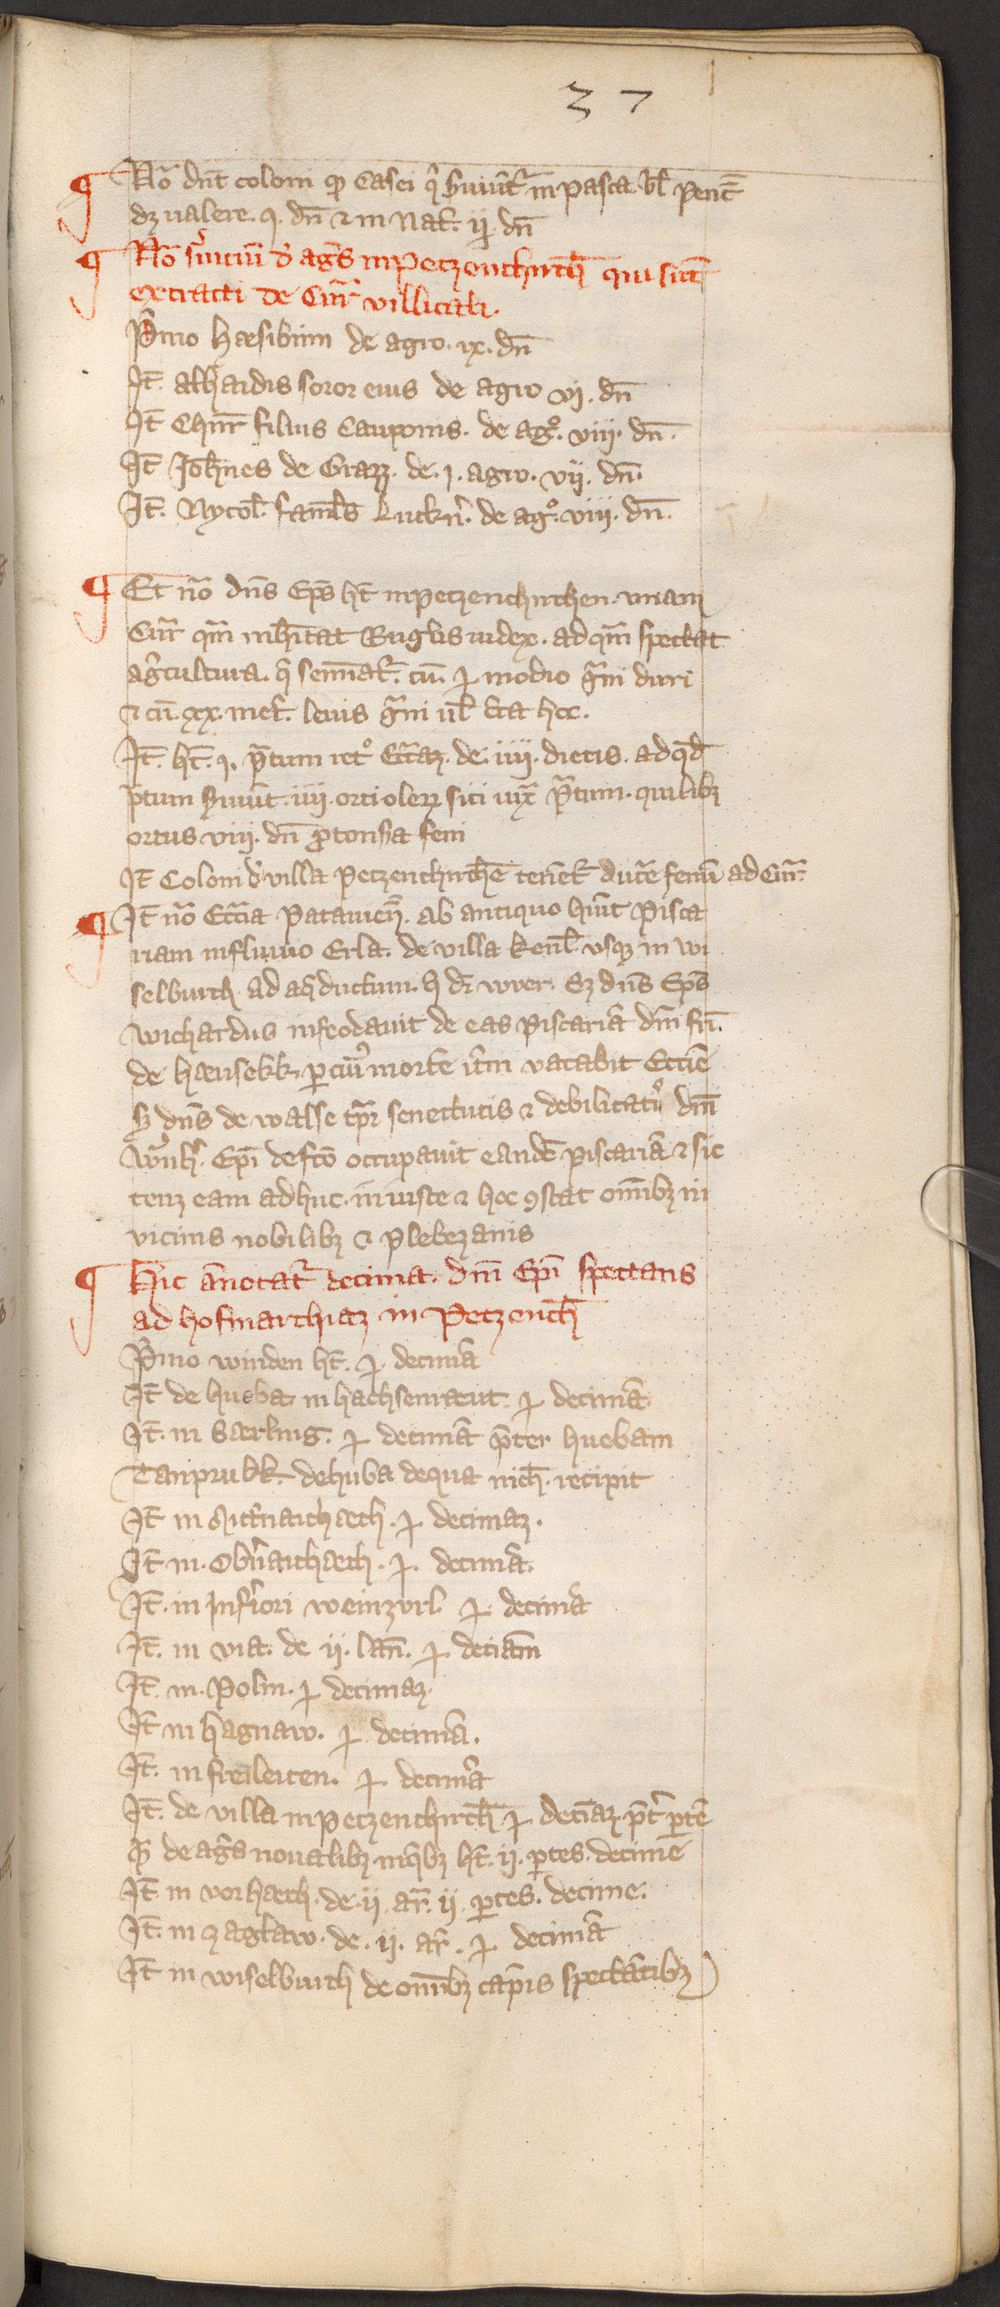 37
No dnt coloni qd Casei q̓ Suiūt in pasca. vl̓ pent̄
dz valere. q. dn̄ ⁊ in Nat. ij dn̄
No s̓uiciū d̓ ag̓s in petzenchirch̄ qui sūt
extracti de Cur̄ villicali.
P̓mo hæsibinn de agro. ix. dn̄
It̄. alhaidis soror eius de agro vj. dn̄
It̄ Chunr̄ filius Cauponis. de ag̊. viij. dn̄.
It̄ Joh̄nes de Grazz. de. j. agro. vij. dn̄.
It̄. Nycol̄. fam̄ls Luckn̓. de ag̊. viij. dn̄.
Et nō dn̄s Ep̄s ht̄ in petzenchirchen. vnam
Cur̄ quā inh̄itat Ruglis iudex. ad quā spectat
ag̓cultura. q̄ sem̄iat̄. cū. j modio g̓ni duri
⁊ cū. xx. met̄. leuis g̓ni vl̄ ct̄a hec.
It̄. ht̄. j. p̄tum ret̊ Ecc̄iaz. de. iiij. dietis. ad qd̄
p̄tum S̓uiūt. iiij. orti olerꝝ siti iux̄ p̄tum. quilibz
ortus viij. dn̄ p̄ tonsura feni
It̄ Coloni d̓ villa Petzenchirchē tenēt̄ duc̄e fenū ad Cur̄.
It̄ nō Ecc̄ia Patauien̄. ab antiquo hūit Pisca
riam in fluuio Erla. de villa kenl̄ vsqz in wi
selburch ad aq̄ductum. q̄ dr̄ wver. Sz dn̄s Ep̄s
Wichardus infeodauit de eas piscariā dn̄m fri.
de hæusekk. p̄ cui̓ mortē it̓m vacabit Ecc̄ie
S; dn̄s de walsse tp̄r senectutis ⁊ debilitat̓ dn̄i
Wernh̓. Ep̄i de fc̄o occupauit eandē piscariā ⁊ sic
tenz eam adhuc. iniuste ⁊ hoc ꝯstat om̄ibz in
vicinis nobilibz ⁊ plebezanis
Hic ān̄otat̄ decima. dn̄i Ep̄i spectans
ad hofmarchiaz in Petzench̄
P̓mo winden ht̄. j. decimā
It̄ de huba. in hachsenraeut. j decimā.
It̄. in Særling. j decimā p̄ter huebam
Tanprukk. de huba de qua nich̄. recipit
It̄ in Nid̓naich æch. j. decimaz.
It̄ in. Obn̓aichæch. j. decimā.
It̄. in Inf̓iori weinzvrl j. decimā
It̄. in via. de ij. lan̄. j. decimā
It̄. in. Polin. j decimaz.
It̄ in hagnaw. j decimā.
It̄. in freileiten. j. decimā
It̄. de villa in petzenchirch̄ j. decimaz p̄t̓ p̄tē
qd̄ de ag̓s noualibz in q̄bz ht̄. ij. p̄tes. decime
It̄ in vorhæch. de. ij ar̄. ij. p̄tes. decime.
It̄. in zaglaw. de. ij. ar̄. j. decimā
It̄ in wiselburch de om̄ibz cāpis spectātibz